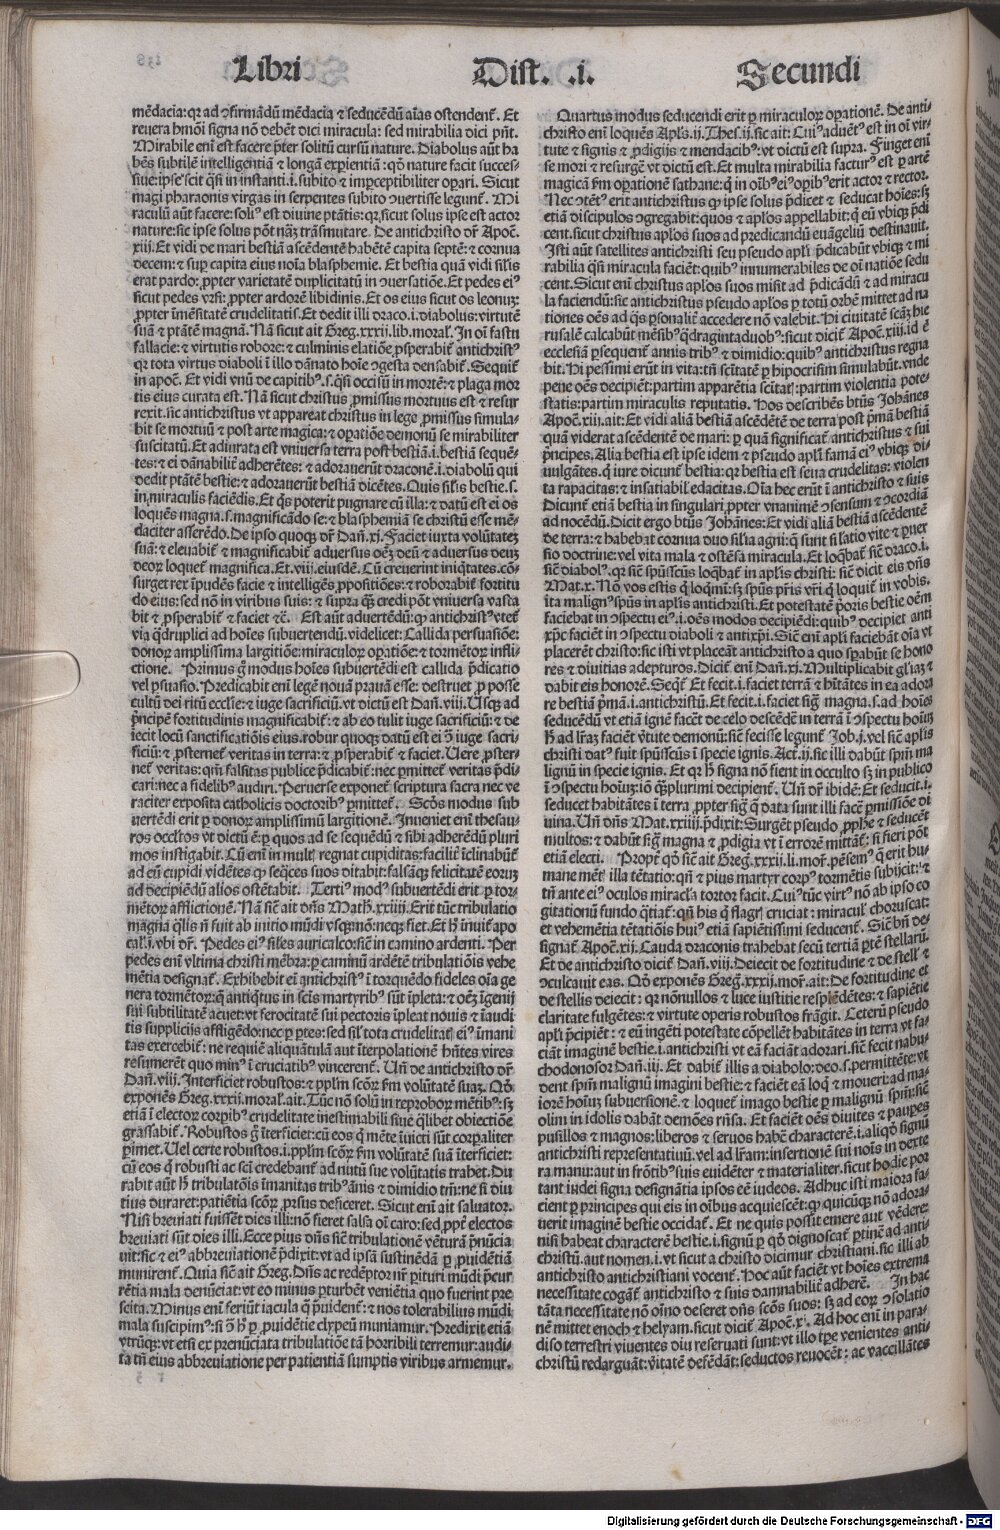 Libri Dist. .i. Secundi
mēdacia: qꝛ ad ↄfirmādū mēdacia ⁊ seducēdū aīas ostendent̄. Et
reuera hmōi signa nō debēt dici miracula: sed mirabilia dici pn̄t.
Mirabile enī est facere p̄ter solitū cursū nature. Diabolus aūt ha
bēs subtilē intelligentiā ⁊ longā exꝑientiā: qd̄ nature facit succes-
siue: ipse scit q̄si in instanti .i. subito ⁊ imꝑceptibiliter oꝑari. Sicut
magi pharaonis virgas in serpentes subito ↄuertisse legunt̄. Mi
raculū aūt facere: soliꝰ est diuine ptātis: qꝛ sicut solus ipse est actor
nature: sic ipse solus pōt nāꝫ trāsmutare. De antichristo dr̄ Apoc̄.
xiij. Et vidi de mari bestiā ascēdentē habētē capita septē: ⁊ cornua
decem: ⁊ suꝑ capita eius noīa blasphemie. Et bestia quā vidi sil̄is
erat pardo: ꝓpter varietatē duplicitatū in ↄuersatiōe. Et pedes eiꝰ
sicut pedes vrsi: ꝓpter ardorē libidinis. Et os eius sicut os leonuꝫ:
ꝓpter īmēsitatē crudelitatis. Et dedit illi draco .i. diabolus: virtutē
suā ⁊ ptātē magnā. Nā sicut ait Greg. xxxij. lib. moral̄. In oī fastu
fallacie: ⁊ virtutis robore: ⁊ culminis elatiōe ꝓsperabit̄ antichristꝰ
qꝛ tota virtus diaboli ī illo dānato hoīe ↄgesta densabit̄. Sequit̄
in apoc̄. Et vidi vnū de capitibꝰ .s. q̄si occisū in mortē: ⁊ plaga mor
tis eius curata est. Nā sicut christus ꝓmissus mortuus est ⁊ resur
rexit. sic antichristus vt appareat christus in lege ꝓmissus simula-
bit se mortuū ⁊ post arte magica: ⁊ oꝑatiōe demonū se mirabiliter
suscitatū. Et adiurata est vniuersa terra post bestiā .i. bestiā sequē-
tes: ⁊ ei dānabilit̄ adherētes: ⁊ adorauerūt draconē .i. diabolū qui
dedit ptātē bestie: ⁊ adorauerūt bestiā dicētes. Quis sil̄is bestie .s.
in miraculis faciēdis. Et q̄s poterit pugnare cū illa: ⁊ datū est ei os
loquēs magna .s. magnificādo se: ⁊ blasphemiā se christū esse mē-
daciter asserēdo. De ipso quoqꝫ dr̄ Dan̄. xj. Faciet iuxta volūtateꝫ
suā: ⁊ eleuabit̄ ⁊ magnificabit̄ aduersus oēꝫ deū ⁊ aduersus deuꝫ
deoꝝ loquet̄ magnifica. Et .viij. eiusdē. Cū creuerint iniq̄tates. cō-
surget rex īpudēs facie ⁊ intelligēs ꝓpositiōes: ⁊ roborabit̄ fortitu
do eius: sed nō in viribus suis: ⁊ supra q̄ꝫ credi pōt vniuersa vasta
bit ⁊ ꝓsperabit̄ ⁊ faciet ⁊c̄. Est aūt aduertēdū: ꝙ antichristꝰ vtet̄
via q̄druplici ad hoīes subuertendū. videlicet: Callida persuasiōe:
donoꝝ amplissima largitiōe: miraculoꝝ oꝑatiōe: ⁊ tormētoꝝ infli-
ctione. Primus g̊ modus hoīes subuertēdi est callida p̄dicatio
vel ꝑsuasio. Predicabit enī legē nouā prauā esse: destruet ꝓ posse
cultū dei ritū eccl̄ie: ⁊ iuge sacrificiū. vt dictū est Dan̄. viij. Usqꝫ ad
p̄ncipē fortitudinis magnificabit̄: ⁊ ab eo tulit iuge sacrificiū: ⁊ de
iecit locū sanctificatiōis eius. robur quoqꝫ datū est ei ↄ̄ iuge sacri-
ficiū: ⁊ ꝓsternet̄ veritas in terra: ⁊ ꝓsperabit̄ ⁊ faciet. Uere ꝓster-
net̄ veritas: qm̄ falsitas publice p̄dicabit̄: nec ꝑmittet̄ veritas p̄di-
cari: nec a fidelibꝰ audiri. Peruerse exponet̄ scriptura sacra nec ve
raciter exposita catholicis doctoribꝰ ꝑmittet̄. Scd̄s modus sub
uertēdi erit ꝑ donoꝝ amplissimū largitionē. Inueniet enī thesau-
ros occl̄tos vt dictū ē: ꝑ quos ad se sequēdū ⁊ sibi adherēdū pluri
mos instigabit. Cū enī in mult̄ regnat cupiditas: facilit̄ īclinabūt̄
ad eū cupidi vidētes ꝙ seq̄ces suos ditabit: falsāqꝫ felicitatē eoruꝫ
ad decipiēdū alios ostētabit. Tertiꝰ modꝰ subuertēdi erit ꝑ tor-
mētoꝝ afflictionē. Nā sic̄ ait dn̄s Math̄. xxiiij. Erit tūc tribulatio
magna q̄lis nō fuit ab initio mūdi vsqꝫ mō: neqꝫ fiet. Et h̄ īnuit̄ apo
cal̄. j. vbi dr̄. Pedes eiꝰ sil̄es auricalco: sic̄ in camino ardenti. Per
pedes enī vltima christi mēbra: ꝑ caminū ardētē tribulatiōis vehe
mētia designat̄. Exhibebit eī antichristꝰ ī torquēdo fideles oīa ge
nera tormētoꝝ: q̄ antiq̄tus in scīs martyribꝰ sūt īpleta: ⁊ oēꝫ īgenij
sui subtilitatē acuet: vt ferocitatē sui pectoris īpleat nouis ⁊ īaudi
tis supplicijs affligēdo: nec ꝑ ꝑtes: sed sil̄ tota crudelitat̄ eiꝰ īmani
tas exercebit̄: ne requiē aliquātulā aut īterpolationē hn̄tes vires
resumerēt quo minꝰ ī cruciatibꝰ vincerent̄. Un̄ de antichristo dr̄
Dan̄. viij. Interficiet robustos: ⁊ ppl̄m scōꝝ fm̄ volūtatē suaꝫ. Qd̄
exponēs Greg. xxxij. moral̄. ait. Tūc nō solū in reproboꝝ mētibꝰ: sꝫ
etiā ī electoꝝ corpibꝰ crudelitate inestimabili siue q̄libet obiectiōe
grassabit̄. Robustos g̊ īterficiet: cū eos q̄ mēte īuicti sūt corꝑaliter
ꝑimet. Uel certe robustos .i. ppl̄m scōꝝ fm̄ volūtatē suā īterficiet:
cū eos q̄ robusti ac scī credebant̄ ad nutū sue volūtatis trahet. Du
rabit aūt h̄ tribulatōis īmanitas tribꝰ ānis ⁊ dimidio tm̄: ne si diu
tius duraret: patiētia scōꝝ ꝓrsus deficeret. Sicut enī ait saluator.
Nisi breuiati fuissēt dies illi: nō fieret salua oī caro: sed ꝓpt̄ electos
breuiati sūt dies illi. Ecce pius dn̄s sic̄ tribulationē vēturā p̄nūcia
uit: sic ⁊ eiꝰ abbreuiationē p̄dixit: vt ad ipsā sustinēdā ꝑ ꝓuidētiā
munirent̄. Quia sic̄ ait Greg. Dn̄s ac redēptor nr̄ ꝑituri mūdi p̄cur
rētia mala denūciat: vt eo minus ꝑturbēt veniētia quo fuerint pre
scita. Minus enī feriūt iacula q̄ p̄uident̄: ⁊ nos tolerabilius mūdi
mala suscipimꝰ: si ↄ̄ h̄ ꝑ ꝓuidētie clypeū muniamur. Predixit etiā
vtrūqꝫ: vt etsi ex prenūciata tribulatiōe tā horribili terremur: audi-
ta tn̄ eius abbreuiatione per patientiā sumptis viribus armemur.
Quartus modus seducendi erit ꝑ miraculoꝝ oꝑationē. De anti-
christo enī loquēs Apl̄s .ij. Thes. ij. sic ait: Cuiꝰ aduētꝰ est in oī vir-
tute ⁊ signis ⁊ ꝓdigijs ⁊ mendacibꝰ: vt dictū est supra. Finget enī
se mori ⁊ resurgē vt dictū est. Et multa mirabilia facturꝰ est ꝑ artē
magicā fm̄ oꝑationē sathane: q̄ in oībꝰ eiꝰ oꝑibꝰ erit actor ⁊ rector.
Nec ↄtētꝰ erit antichristus ꝙ ipse solus p̄dicet ⁊ seducat hoīes: sꝫ
etiā discipulos ↄgregabit: quos ⁊ apl̄os appellabit: q̄ eū vbiqꝫ p̄di
cent. sicut christus apl̄os suos ad predicandū euāgeliū destinauit.
Isti aūt satellites antichristi seu pseudo apl̄i p̄dicabūt vbiqꝫ ⁊ mi
rabilia q̄si miracula faciēt: quibꝰ innumerabiles de oī natiōe sedu
cent. Sicut enī christus apl̄os suos misit ad p̄dicādū ⁊ ad miracu
la faciendū: sic antichristus pseudo apl̄os ꝑ totū orbē mittet ad na
tiones oēs ad q̄s ꝑsonalit̄ accedere nō valebit. Hi ciuitatē scāꝫ hie
rusalē calcabūt mēsibꝰ q̄dragintaduobꝰ: sicut dicit̄ Apoc̄. xiij. id ē
ecclesiā ꝑsequent̄ annis tribꝰ ⁊ dimidio: quibꝰ antichristus regna
bit. Hi pessimi erūt in vita: tn̄ scītatē ꝑ hipocrisim simulabūt. vnde
pene oēs decipiēt: partim apparētia scītat̄: partim violentia pote-
statis: partim miraculis reputatis. Hos describēs btūs Johānes
Apoc̄. xiij. ait: Et vidi aliā bestiā ascēdētē de terra post p̄mā bestiā
quā viderat ascēdentē de mari: ꝑ quā significat̄ antichristus ⁊ sui
p̄ncipes. Alia bestia est ipse idem ⁊ pseudo apl̄i famā eiꝰ vbiqꝫ di-
uulgātes. q̄ iure dicunt̄ bestia: qꝛ bestia est seua crudelitas: violen
ta rapacitas: ⁊ insatiabil̄ edacitas. Oīa hec erūt ī antichristo ⁊ suis
Dicunt̄ etiā bestia in singulari ꝓpter vnanimē ↄsensum ⁊ ↄcordiā
ad nocēdū. Dicit ergo btūs Johānes: Et vidi aliā bestiā ascēdētē
de terra: ⁊ habebat cornua duo sil̄ia agni: q̄ sunt sil̄atio vite ⁊ ꝑuer
sio doctrine: vel vita mala ⁊ ostēsa miracula. Et loq̄bat̄ sic̄ draco .i.
sic̄ diabolꝰ. qꝛ sic̄ spūsscūs loq̄bat̄ in apl̄is christi: sic̄ dicit eis dn̄s
Mat. x. Nō vos estis q̄ loq̄mī: sꝫ spūs pr̄is vr̄i q̄ loquit̄ in vobis.
ita malignꝰ spūs in apl̄is antichristi. Et potestatē p̄oris bestie oēm
faciebat in ↄspectu eiꝰ .i. oēs modos decipiēdi: quibꝰ decipiet anti
xp̄c̄ faciēt in ↄspectu diaboli ⁊ antixp̄i. Sic̄ enī apl̄i faciebāt oīa vt
placerēt christo: sic isti vt placeāt antichristo a quo sꝑabūt se hono
res ⁊ diuitias adepturos. Dicit̄ enī Dan̄. xj. Multiplicabit gl̄iaꝫ ⁊
dabit eis honorē. Seqt̄ Et fecit .i. faciet terrā ⁊ hītātes in ea adora
re bestiā p̄mā .i. antichristū. Et fecit .i. faciet sig̊ magna .s. ad hoīes
seducēdū vt etiā ignē facēt de celo descēdē in terrā ī ↄspectu hoīuꝫ
h̄ ad l̄raꝫ faciēt v̄tute demonū: sic̄ fecisse legunt̄ Job. j. vel sic̄ aplis
christi datꝰ fuit spūsscūs ī specie ignis. Act. ij. sic illi dabūt spm̄ ma
lignū in specie ignis. Et qꝛ h̄ signa nō fient in occulto sꝫ in publico
ī ↄspectu hoīuꝫ: iō q̄plurimi decipient̄. Un̄ dr̄ ibidē: Et seducit .i.
seducet habitātes ī terra ꝓpter sig̊ q̄ data sunt illi facē ꝑmissiōe di
uina. Un̄ dn̄s Mat. xxiiij. p̄dixit: Surgēt pseudo ꝓphe ⁊ seducēt
multos: ⁊ dabūt sig̊ magna ⁊ ꝓdigia vt ī errorē mittāt̄: si fieri pōt
etiā electi. Propt̄ qd̄ sic̄ ait Greg. xxxij. li. mor̄. pēsemꝰ q̄ erit hu-
mane mēt̄ illa tētatio: qn̄ ⁊ pius martyr corpꝰ tormētis subijcit̄: ⁊
tn̄ ante eiꝰ oculos miracl̄a tortor facit. Cuiꝰ tūc virtꝰ nō ab ipso co
gitationū fundo q̄tiat̄: qn̄ his q̄ flagr̄ cruciat: miracul̄ choruscat:
et vehemētia tētatiōis huiꝰ etiā sapiētissimi seducent̄. Sic̄ bn̄ de-
signat̄. Apoc̄. xij. Cauda draconis trahebat secū tertiā ꝑtē stellarū.
Et de antichristo dicit̄ Dan̄. viij. Deiecit de fortitudine ⁊ de stell̄ ⁊
ↄculcauit eas. Qd̄ exponēs Greg̊. xxxij. mor̄. ait: De fortitudine et
de stellis deiecit: qꝛ nōnullos ⁊ luce iustitie resplēdētes: ⁊ sapiētie
claritate fulgētes: ⁊ virtute operis robustos frāgit. Ceterū pseudo
apl̄i p̄cipiēt: ⁊ eū ingēti potestate cōpellēt habitātes in terra vt fa-
ciāt imaginē bestie .i. antichristi vt eā faciāt adorari. sic̄ fecit nabu-
chodonosor Dan̄. iij. Et dabit̄ illis a diabolo: deo .s. permittēte: vt
dent spm̄ malignū imagini bestie: ⁊ faciēt eā loq̄ ⁊ moueri: ad ma-
iorē hoīuꝫ subuersionē. ⁊ loquet̄ imago bestie ꝑ malignū spm̄: sic̄
olim in idolis dabāt demōes rn̄sa. Et faciēt oēs diuites ⁊ paupes
pusillos ⁊ magnos: liberos ⁊ seruos habē characterē .i. aliqd̄ signū
antichristi representatiuū. vel ad l̄ram: insertionē sui nois in dexte
ra manu: aut in frōtibꝰ suis euidēter ⁊ materialiter. sicut hodie por
tant iudei signa designātia ipsos eē iudeos. Adhuc isti maiora fa-
cient ꝑ principes qui eis in oībus acquiescēt: ꝙ quicūqꝫ nō adora-
uerit imaginē bestie occidat̄. Et ne quis possit emere aut vēdere:
nisi habeat characterē bestie .i. signū ꝑ qd̄ dignoscat̄ ꝑtinē ad anti-
christū. aut nomen .i. vt sicut a christo dicimur christiani. sic illi ab
antichristo antichristiani vocent̄. Hoc aūt faciēt vt hoīes extrema
necessitate cogāt̄ antichristo ⁊ suis damnabilit̄ adherē. In hac
tāta necessitate nō oīno deseret dn̄s scōs suos: sꝫ ad eoꝝ ↄsolatio
nē mittet enoch ⁊ helyam. sicut dicit̄ Apoc̄. xj. Ad hoc enī in para-
diso terrestri viuentes diu reseruati sunt: vt illo tꝑe venientes anti-
christū redarguāt: v̄itatē defēdāt: seductos reuocēt: ac vaccillātes
Digitalisierung gefördert durch die Deutsche Forschungsgemeinschaft - DFG